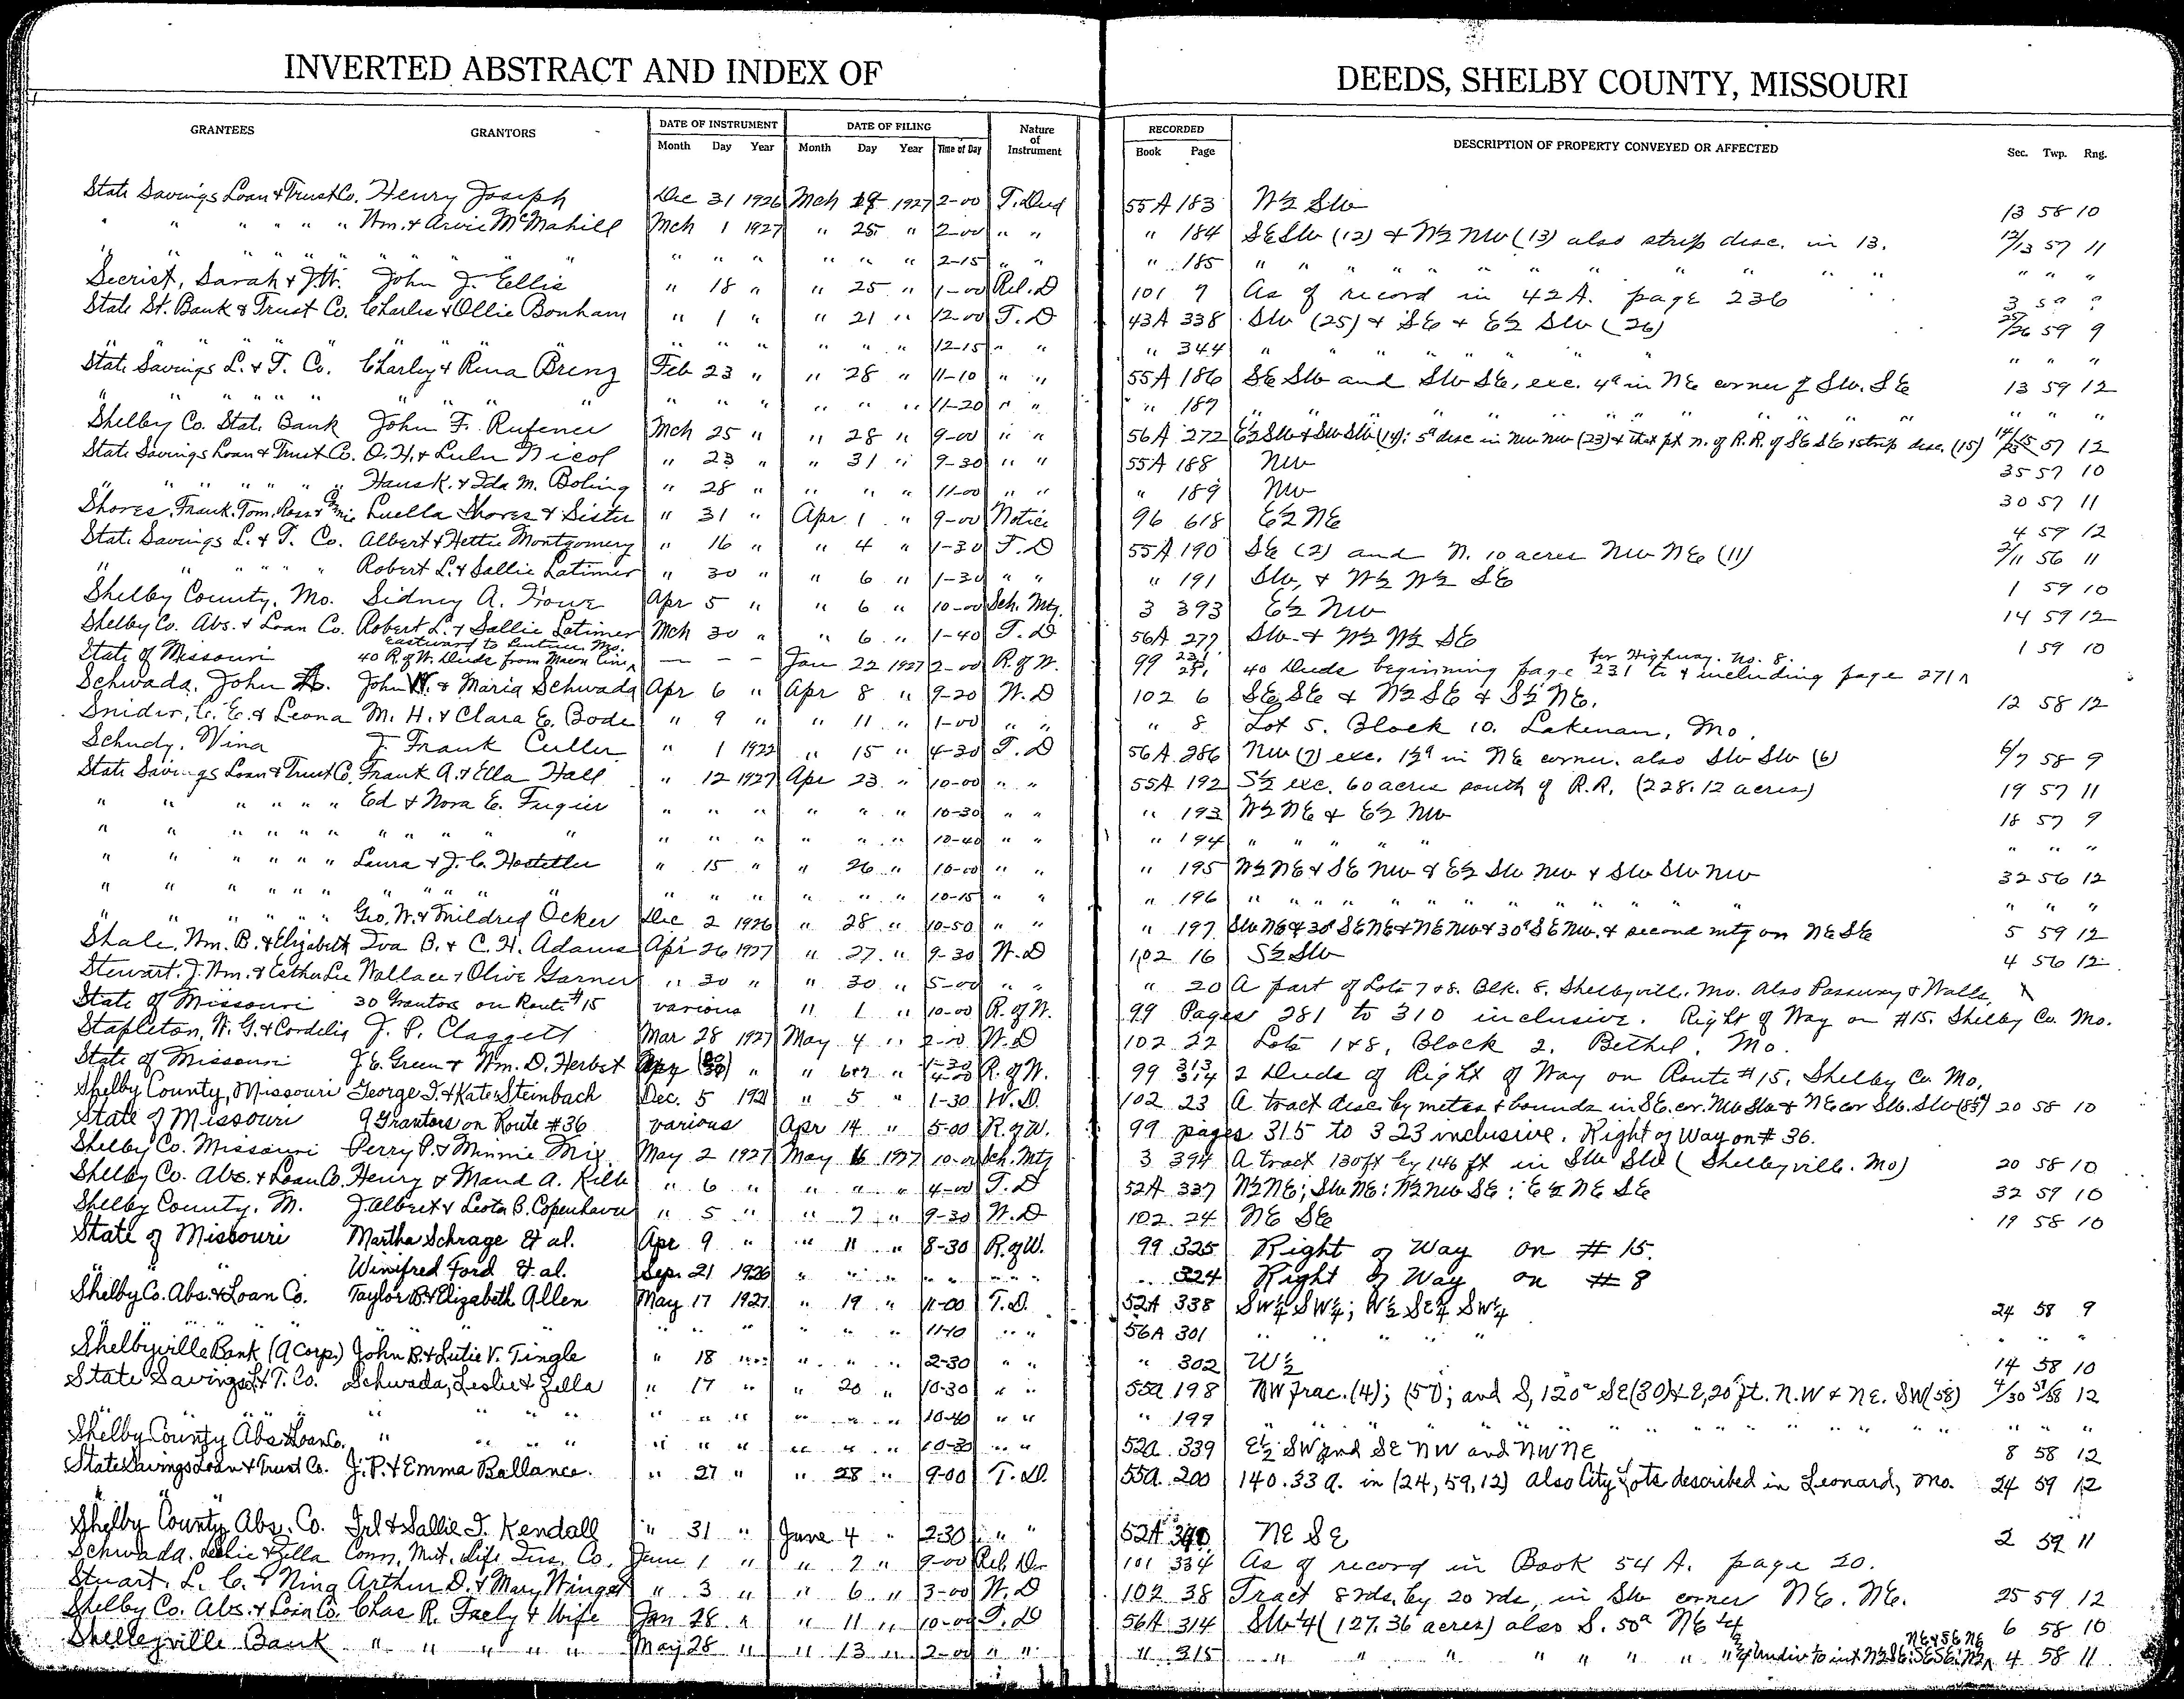 INVERTED ABSTRACT AND INDEX OF DEEDS, SHELBY COUNTY, MISSOURI
GRANTEES GRANTORS DATE OF INSTRUMENT DATE OF FILING Nature of Instrument RECORDED DESCRIPTION OF PROPERTY CONVEYED OR AFFECTED Sec. Twp. Rng.
Month Day Year Month Day Year Time of Day Book Page
State Savings Loan & Trust Co. Henry Joseph Dec 31 1926 Mch 1927 2-00 T. Deed 55A 183 W½ SW 13 58 10
" " " " " " Wm. & Arvie McMahill Mch 1 1927 " 25 " 2-00 " " " 184 SE SW (12) & W½ NW (13) also strip desc. in 13. 12/13 57 11
" " " " " " " " " " " " " " " " 2-15 " " " 185 " " " " " " " " " " " " "
Secrist, Sarah & J.W. John J. Ellis " 18 " " 25 " 1-00 Rel. D 101 7 As of record in 42A. page 236 3 59 "
State St. Bank & Trust Co. Charles & Ollie Bonham " 1 " " 21 " 12-00 T. D 43A 338 SW (25) & SE & E½ SW (26) 25/26 59 9
" " " " " " " " " 12-15 " " " 344 " " " " " " " " "
State Savings L. & T. Co. Charley & Rena Brenz Feb 23 " " 28 " 11-10 " " 55A 186 SE SW and SW SE, exc. 4a in NE corner of SW. SE 13 59 12
" " " " " " " " " " " " " " 11-20 " " " 187 " " " " " " " " " " "
Shelby Co. State Bank John F. Rufener Mch 25 " " 28 " 9-00 " " 56A 272 E½ SW & SW SW (14); 5a desc in NW NW (23) & that pt n. of R.R. of SE SE & strip desc. (15) 57 12
State Savings Loan & Trust Co. O. H. & Lulu Nicol " 23 " " 31 " 9-30 " " 55A 188 NW 35 57 10
" " " " " " Hans K. & Ida M. Boling " 28 " " " " 11-00 " " " 189 NW 30 57 11
Shores, Frank, Tom, Ross & Luella Shores & Sister " 31 " Apr 1 " 9-00 Notice 96 618 E½ NE 4 59 12
State Savings L. & T. Co. Albert & Hettie Montgomery " 16 " " 4 " 1-30 T. D 55A 190 SE (2) and N. 10 acres NW NE (11) 2/11 56 11
" " " " " Robert L. & Sallie Latimer " 30 " " 6 " 1-30 " " " 191 SW, & W½ W½ SE 1 59 10
Shelby County, Mo. Sidney A. Apr 5 " " 6 " 10-00 Sch. Mtg. 3 393 E½ NW 14 59 12
Shelby Co. Abs. & Loan Co. Robert L. & Sallie Latimer Mch 30 " " 6 " 1-40 T. D 56A 277 SW. & W½ W½ SE 1 59 10
eastward to for Highway. No. 8.
State of Missouri 40 R. of W. Deeds from Macon Line — – – Jan 22 1927 2-00 R. of W. 99 231 271 40 Deeds beginning page 231 to & including page 271
Schwada, John A. John W. & Maria Schwada Apr 6 " Apr 8 " 9-20 W. D 102 6 SE. SE & W½ SE & S½ NE. 12 58 12
Snider, C. E. & Leona M. H. & Clara E. Bode " 9 " " 11 " 1-00 " " " 8 Lot 5. Block 10. Lakenan, Mo.
Schudy, Vina J. Frank Culler " 1 1922 " 15 " 4-30 T. D 56A 286 NW (7) exc. 1½a in NE corner. also SW SW (6) 6/7 58 9
State Savings Loan & Trust Co. Frank A. & Ella Hall " 12 1927 Apr 23 " 10-00 " " 55A 192 S½ exc. 60 acres south of R.R. (228.12 acres) 19 57 11
" " " " " " Ed & Nora E. Fugier " " " " " " 10-30 " " " 193 W½ NE & E½ NW 18 57 9
" " " " " " " " " " " " " " " " 10-40 " " " 194 " " " " " " "
" " " " " " Laura & J. C. Hostetter " 15 " " 26 " 10-00 " " " 195 W½ NE & SE NW & E½ SW NW & SW SW NW 32 56 12
" " " " " " " " " " " " " " " " 10-15 " " " 196 " " " " " " " " " " " "
" " " " " " Geo. W. & Mildred Ocker Dec 2 1926 " 28 " 10-50 " " " 197 SW NE & 30a SE NE & NE NW & 30a SE NW. & second mtg on NE SE 5 59 12
Shale, Wm. B. & Elizabeth Iva B. & C. H. Adams Apr 26 1927 " 27 " 9-30 W. D 102 16 S½ SW 4 56 12
Stewart, J. Wm. & Esther Lee Wallace & Olive Garner " 30 " " 30 " 5-00 " " " 20 A part of Lots 7 & 8. Blk. 8. Shelbyville. Mo. Also Passway & Walls,
State of Missouri 30 Grantors on Route #15 various " 1 " 10-00 R. of W. 99 Pages 281 to 310 inclusive. Right of Way on #15. Shelby Co. Mo.
Stapleton, W. G. & Cordelia J. P. Claggett Mar 28 1927 May 4 " 2-10 W. D 102 22 Lots 1 & 8, Block 2. Bethel, Mo.
State of Missouri J. E. Green & Wm. D. Herbst Apr " " 6&7 " R. of W. 99 313 314 2 Deeds of Right of Way on Route #15, Shelby Co. Mo.
Shelby County, Missouri George T. & Kate Steinbach Dec. 5 1921 " 5 " 1-30 W. D. 102 23 A tract desc. by metes & bounds in SE. cor. NW SW & NE cor SW. SW 20 58 10
State of Missouri 9 Grantors on Route #36 various Apr 14 " 5-00 R. of W. 99 pages 315 to 323 inclusive. Right of Way on # 36.
Shelby Co. Missouri Perry P. & Minnie Mix May 2 1927 May 6 1927 10-00 Sch. Mtg 3 394 A tract 130 ft by 146 ft in SW SW (Shelbyville. Mo) 20 58 10
Shelby Co. Abs. & Loan Co. Henry & Maud A. Kilb " 6 " " " " 4-00 T. D 52A 337 N½ NE; SW NE; N½ NW SE; E½ NE SE 32 59 10
Shelby County, M. J. Albert & Leota B. Copenhaver " 5 " " 7 " 9-30 W. D 102 24 NE SE 19 58 10
State of Missouri Martha Schrage et al. Apr 9 " " 11 " 8-30 R. of W. 99 325 Right of Way on # 15.
" " " Winifred Ford et al. Sep. 21 1926 " " " " " " " " 324 Right of Way on # 8
Shelby Co. Abs. & Loan Co. Taylor B. & Elizabeth Allen May 17 1927 " 19 " 11-00 T. D. 52A 338 SW¼ SW¼; W½ SE¼ SW¼ 24 58 9
" " " " " " " " " " 11-10 " " 56A 301 " " " " " " " "
Shelbyville Bank (A Corp.) John B. & Lutie V. Tingle " 18 " " " " 2-30 " " " 302 W½ 14 58 10
State Savings L. & T. Co. Schwada, Leslie & Zella " 17 " " 20 " 10-30 " " 55a 198 NW frac. (4); (57); and S, 120a SE (30) & E, 20 ft. N.W & NE. SW (58) 4/30 57/58 12
" " " " " " " " " " " " 10-40 " " " 199 " " " " " " " " " " " "
Shelby County Abs & Loan Co. " " " " " " " " " " 10-30 " " 52a 339 E½ SW and SE NW and NW NE 8 58 12
State Savings Loan & Trust Co. J. P. & Emma Ballance. " 27 " " 28 " 9-00 T. D. 55a 200 140.33 a. in (24, 59, 12) also City Lots described in Leonard, Mo. 24 59 12
Shelby County Abs. Co. Irl & Sallie T. Kendall " 31 " June 4 " 2-30 " " 52A 340 NE SE 2 59 11
Schwada, Leslie & Zella Conn. Mut. Life Ins. Co. June 1 " " 7 " 9-00 Rel. D. 101 334 As of record in Book 54 A. page 20.
Stuart, L. C. & Nina Arthur D. & Mary Winget " 3 " " 6 " 3-00 W. D 102 38 Tract 8 rds. by 20 rds, in SW corner NE. NE. 25 59 12
Shelby Co. Abs. & Loan Co. Chas R. Faely & Wife Jan 28 " " 11 " 10-00 T. D 56A 314 SW¼ (127.36 acres) also S. 50a NE¼ 6 58 10
Shelbyville Bank " " " " " May 28 " " 13 " 2-00 " " " 315 " " " " " " " 4 58 11